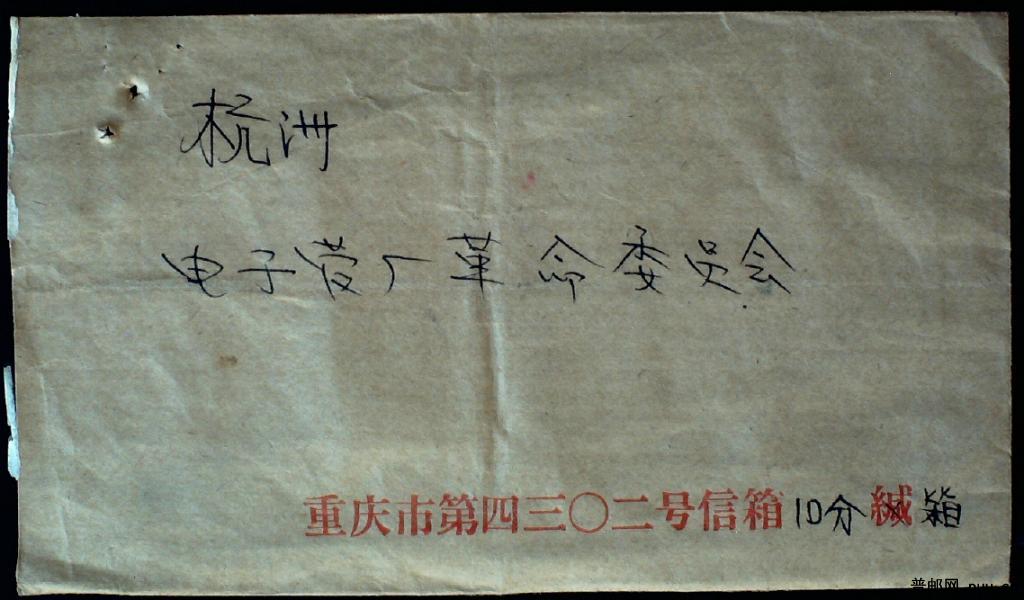 杭洲
电子管厂革命委员会
重庆市第四三〇二号信箱10分缄箱
普邮网